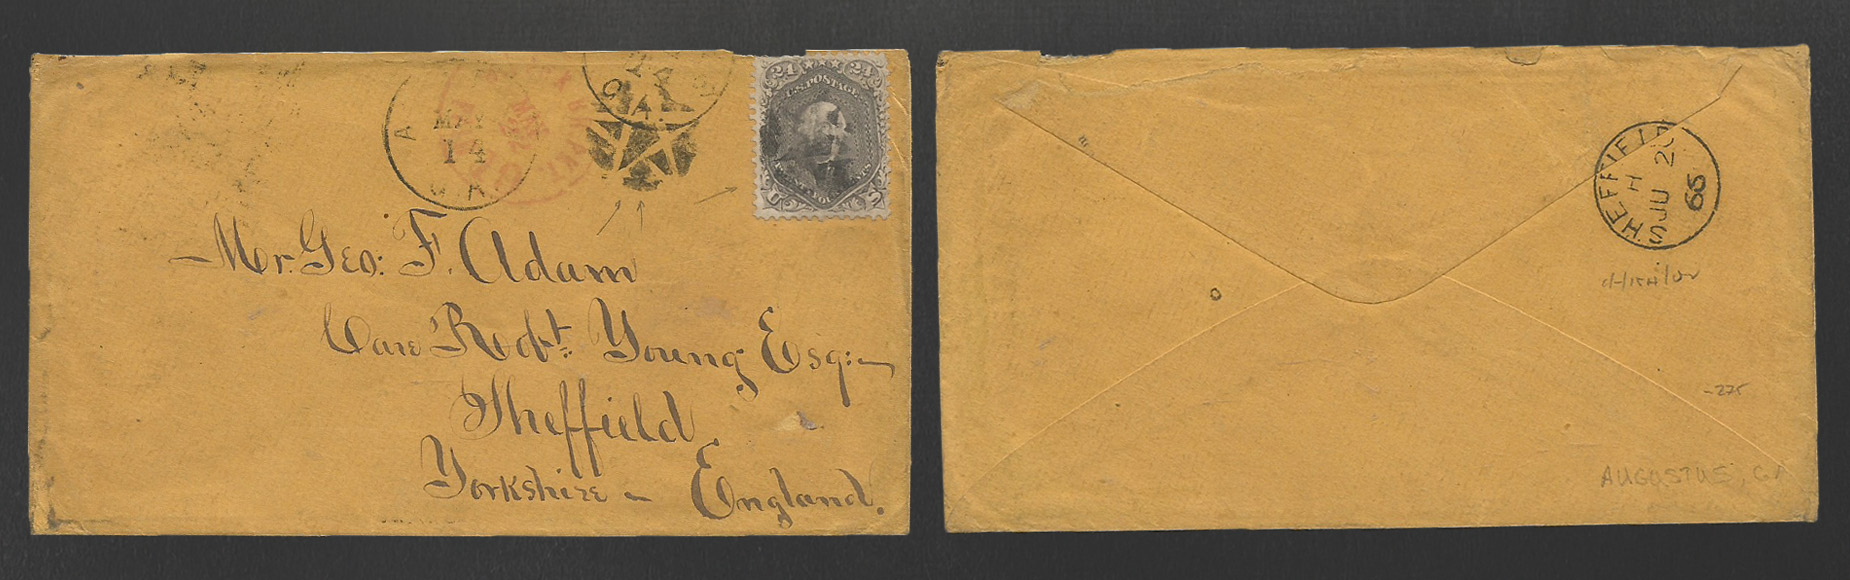 A
MAY
14
GA
14
GA.
24 24
U.S. POSTAGE
U S
Mr. Geo: F. Adam
Care Robt. Young Esq:
Sheffield
Yorkshire – England.
SHEFFIELD
H
JU 2
65
-275
AUGUSTUS, GA